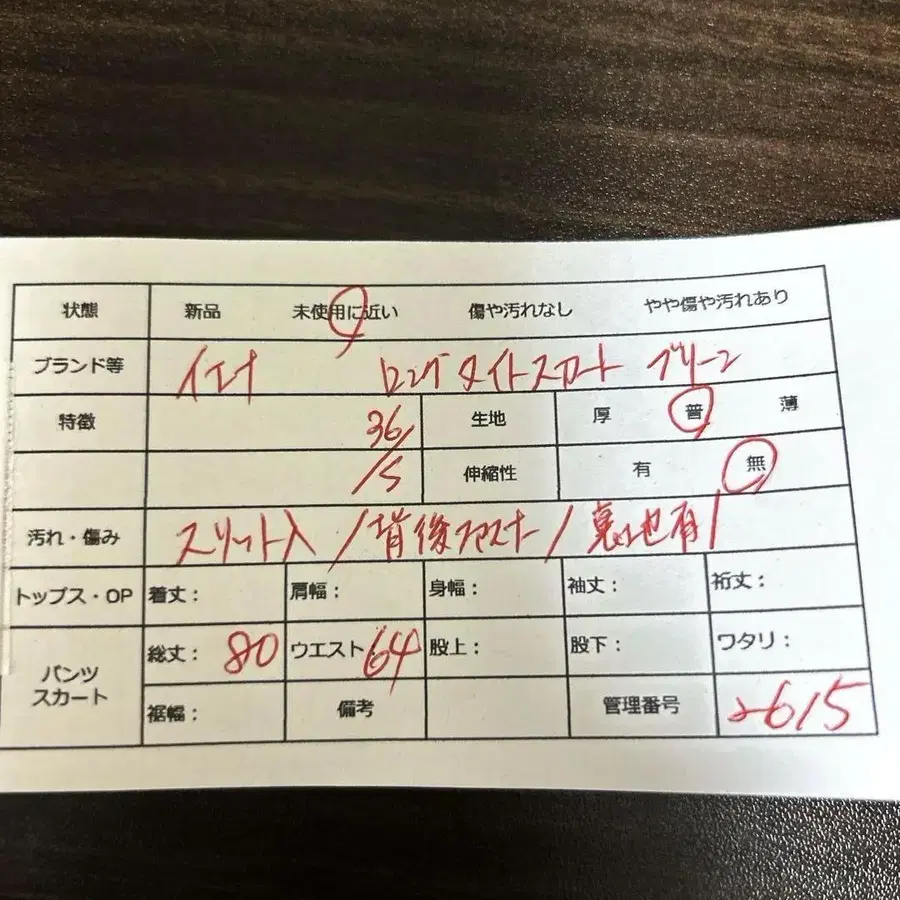 状態 新品 未使用に近い 傷や汚れなし やや傷や汚れあり
ブランド等 イエナ ロングタイトスカート グリーン
特徴 36/ 生地 厚 普 薄
/S 伸縮性 有 無
汚れ・傷み スリット入/背後ファスナー/裏地有/
トップス・OP 着丈: 肩幅: 身幅: 袖丈: 裄丈:
パンツ スカート 総丈: 80 ウエスト: 64 股上: 股下: ワタリ:
裾幅: 備考 管理番号 2615